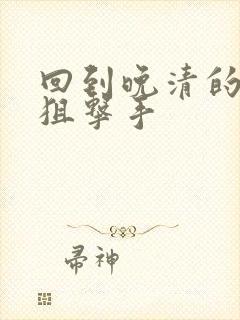 回到晚清的
狙撃手
帚神